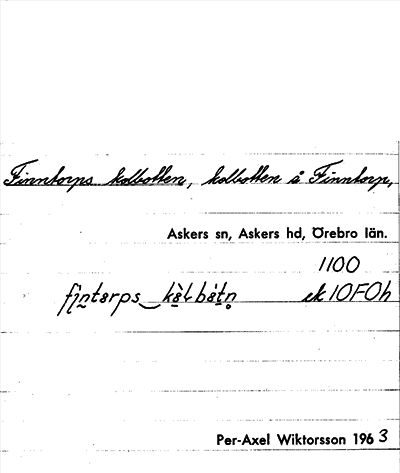 Finntorps kolbotten, kolbotten å Finntorp,
Askers sn, Askers hd, Örebro län.
1100
fi̠n̠tɵrps‿kɵ̀Lbɵ́tn̥ ek 10F0h
Per-Axel Wiktorsson 1963